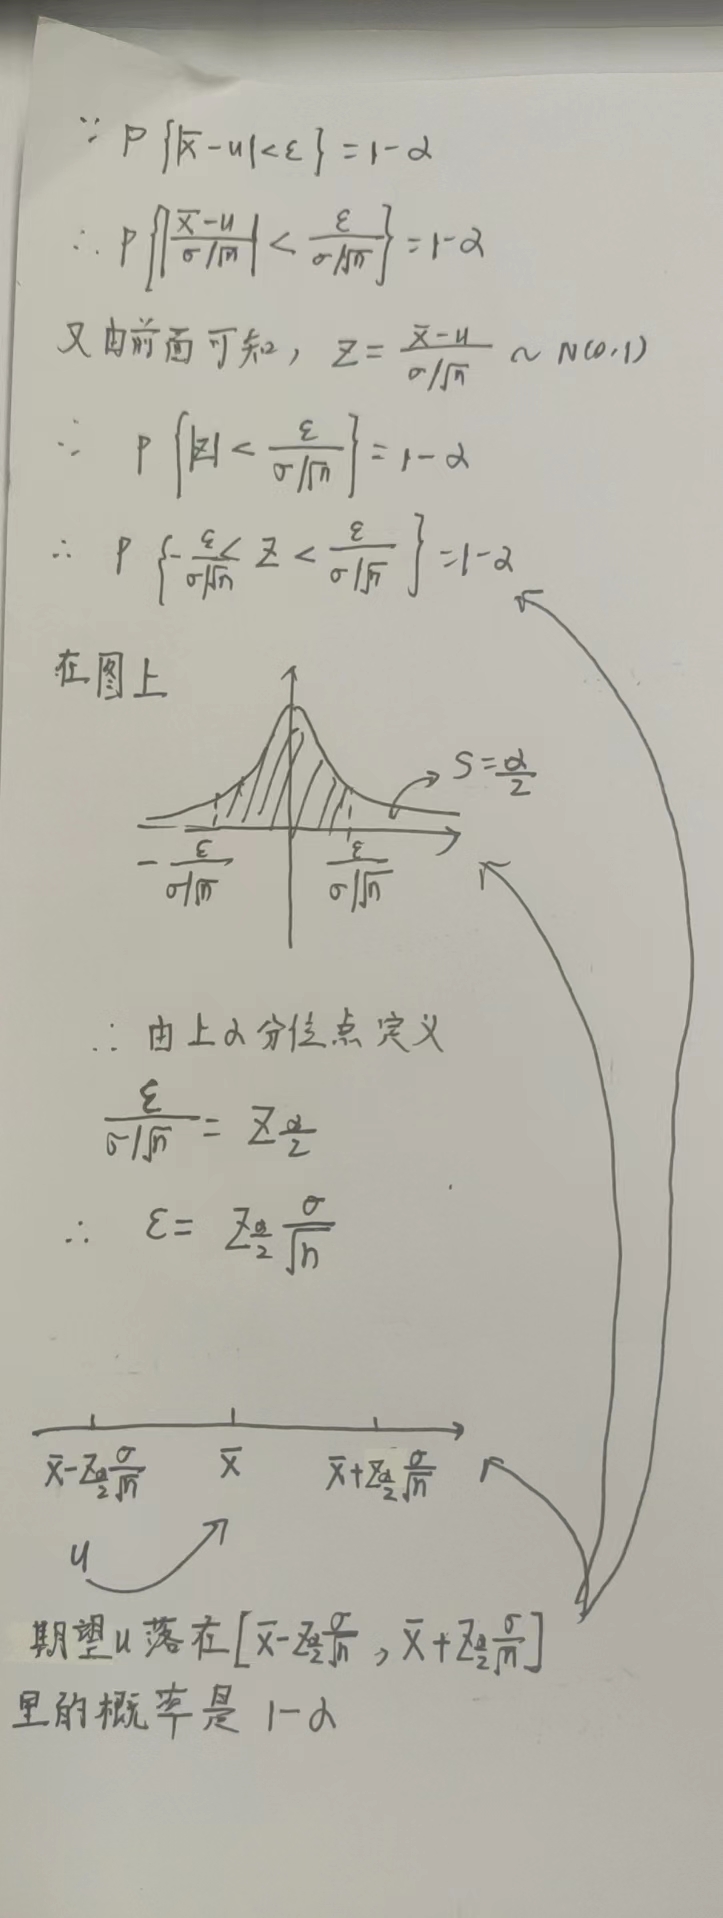 ∵ P{|x̄-u|<ε}=1-α
∴ P{|(x̄-u)/(σ/√n)| < ε/(σ/√n)}=1-α
又由前面可知, Z = (x̄-u)/(σ/√n) ~ N(0,1)
∴ P{|Z| < ε/(σ/√n)}=1-α
∴ P{-ε/(σ/√n) < Z < ε/(σ/√n)}=1-α
在图上
S=α/2
-ε/(σ/√n) ε/(σ/√n)
∴ 由上α分位点定义
ε/(σ/√n) = Z_{α/2}
∴ ε= Z_{α/2} σ/√n
x̄-Z_{α/2} σ/√n x̄ x̄+Z_{α/2} σ/√n
u
期望u落在[x̄-Z_{α/2} σ/√n , x̄+Z_{α/2} σ/√n]
里的概率是 1-α